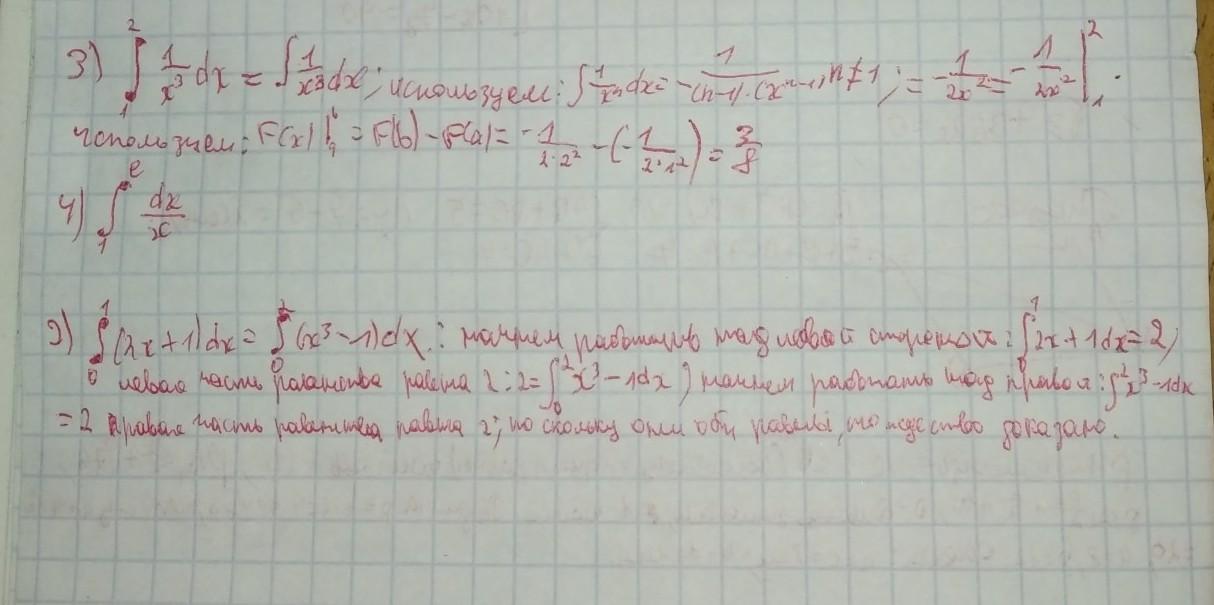 3) ∫₁² 1/x³ dx = ∫ 1/x³ dx; используем: ∫ 1/xⁿ dx = - 1/((n-1)·(xⁿ⁻¹)), n≠1; = - 1/2x² = - 1/2x² |₁².
используем: F(x)|ₐᵇ = F(b) - F(a) = - 1/(2·2²) - (- 1/(2·1²)) = 3/8
4) ∫₁ᵉ dx/x
2) ∫₀¹ (2x+1)dx = ∫₀² (x³-1)dx.: начнем работать над левой стороной: ∫₀¹ 2x+1dx=2,
левая часть равенства равна 2: 2=∫₀² x³-1dx; начнем работать над правой: ∫² x³-1dx
=2 правая часть равенства равна 2; поскольку они обы равны, тождество доказано.